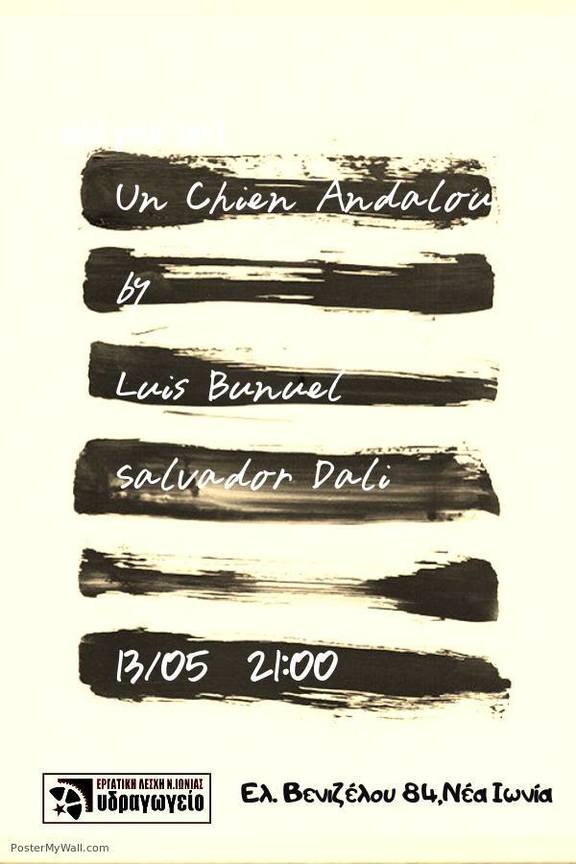 Un Chien Andalou
by
Luis Bunuel
Salvador Dali
13/05 21:00
ΕΡΓΑΤΙΚΗ ΛΕΣΧΗ Ν.ΙΩΝΙΑΣ
υδραγωγείο
Ελ. Βενιζέλου 84,Νέα Ιωνία
PosterMyWall.com